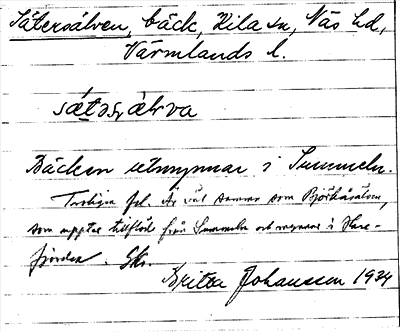 Sätersälven, bäck, Kila sn, Näs hd,
Värmlands l.
sǽtəṣ ǽlva
Bäcken utmynnar i Summeln.
Troligen fel. Är väl samma som Björkåsälven,
som upptar tillflöd från Summeln och mynnar i Har-
fjorden. Gks.
Britta Johansson 1934